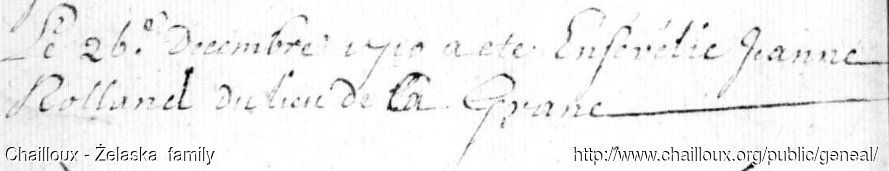 Le 26.e Decembre 1710 a ete Ensévélie Jeanne
Rolland du lieu de la Grane
Chailloux - Żelaska family
http://www.chailloux.org/public/geneal/